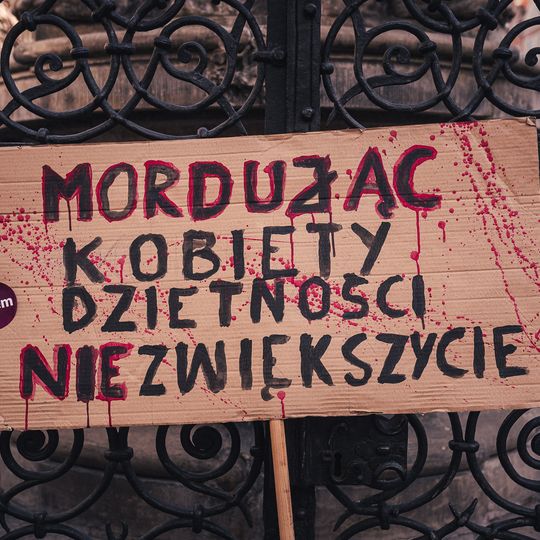 MORDUJĄC
KOBIETY
DZIETNOŚCI
NIEZWIĘKSZYCIE
m